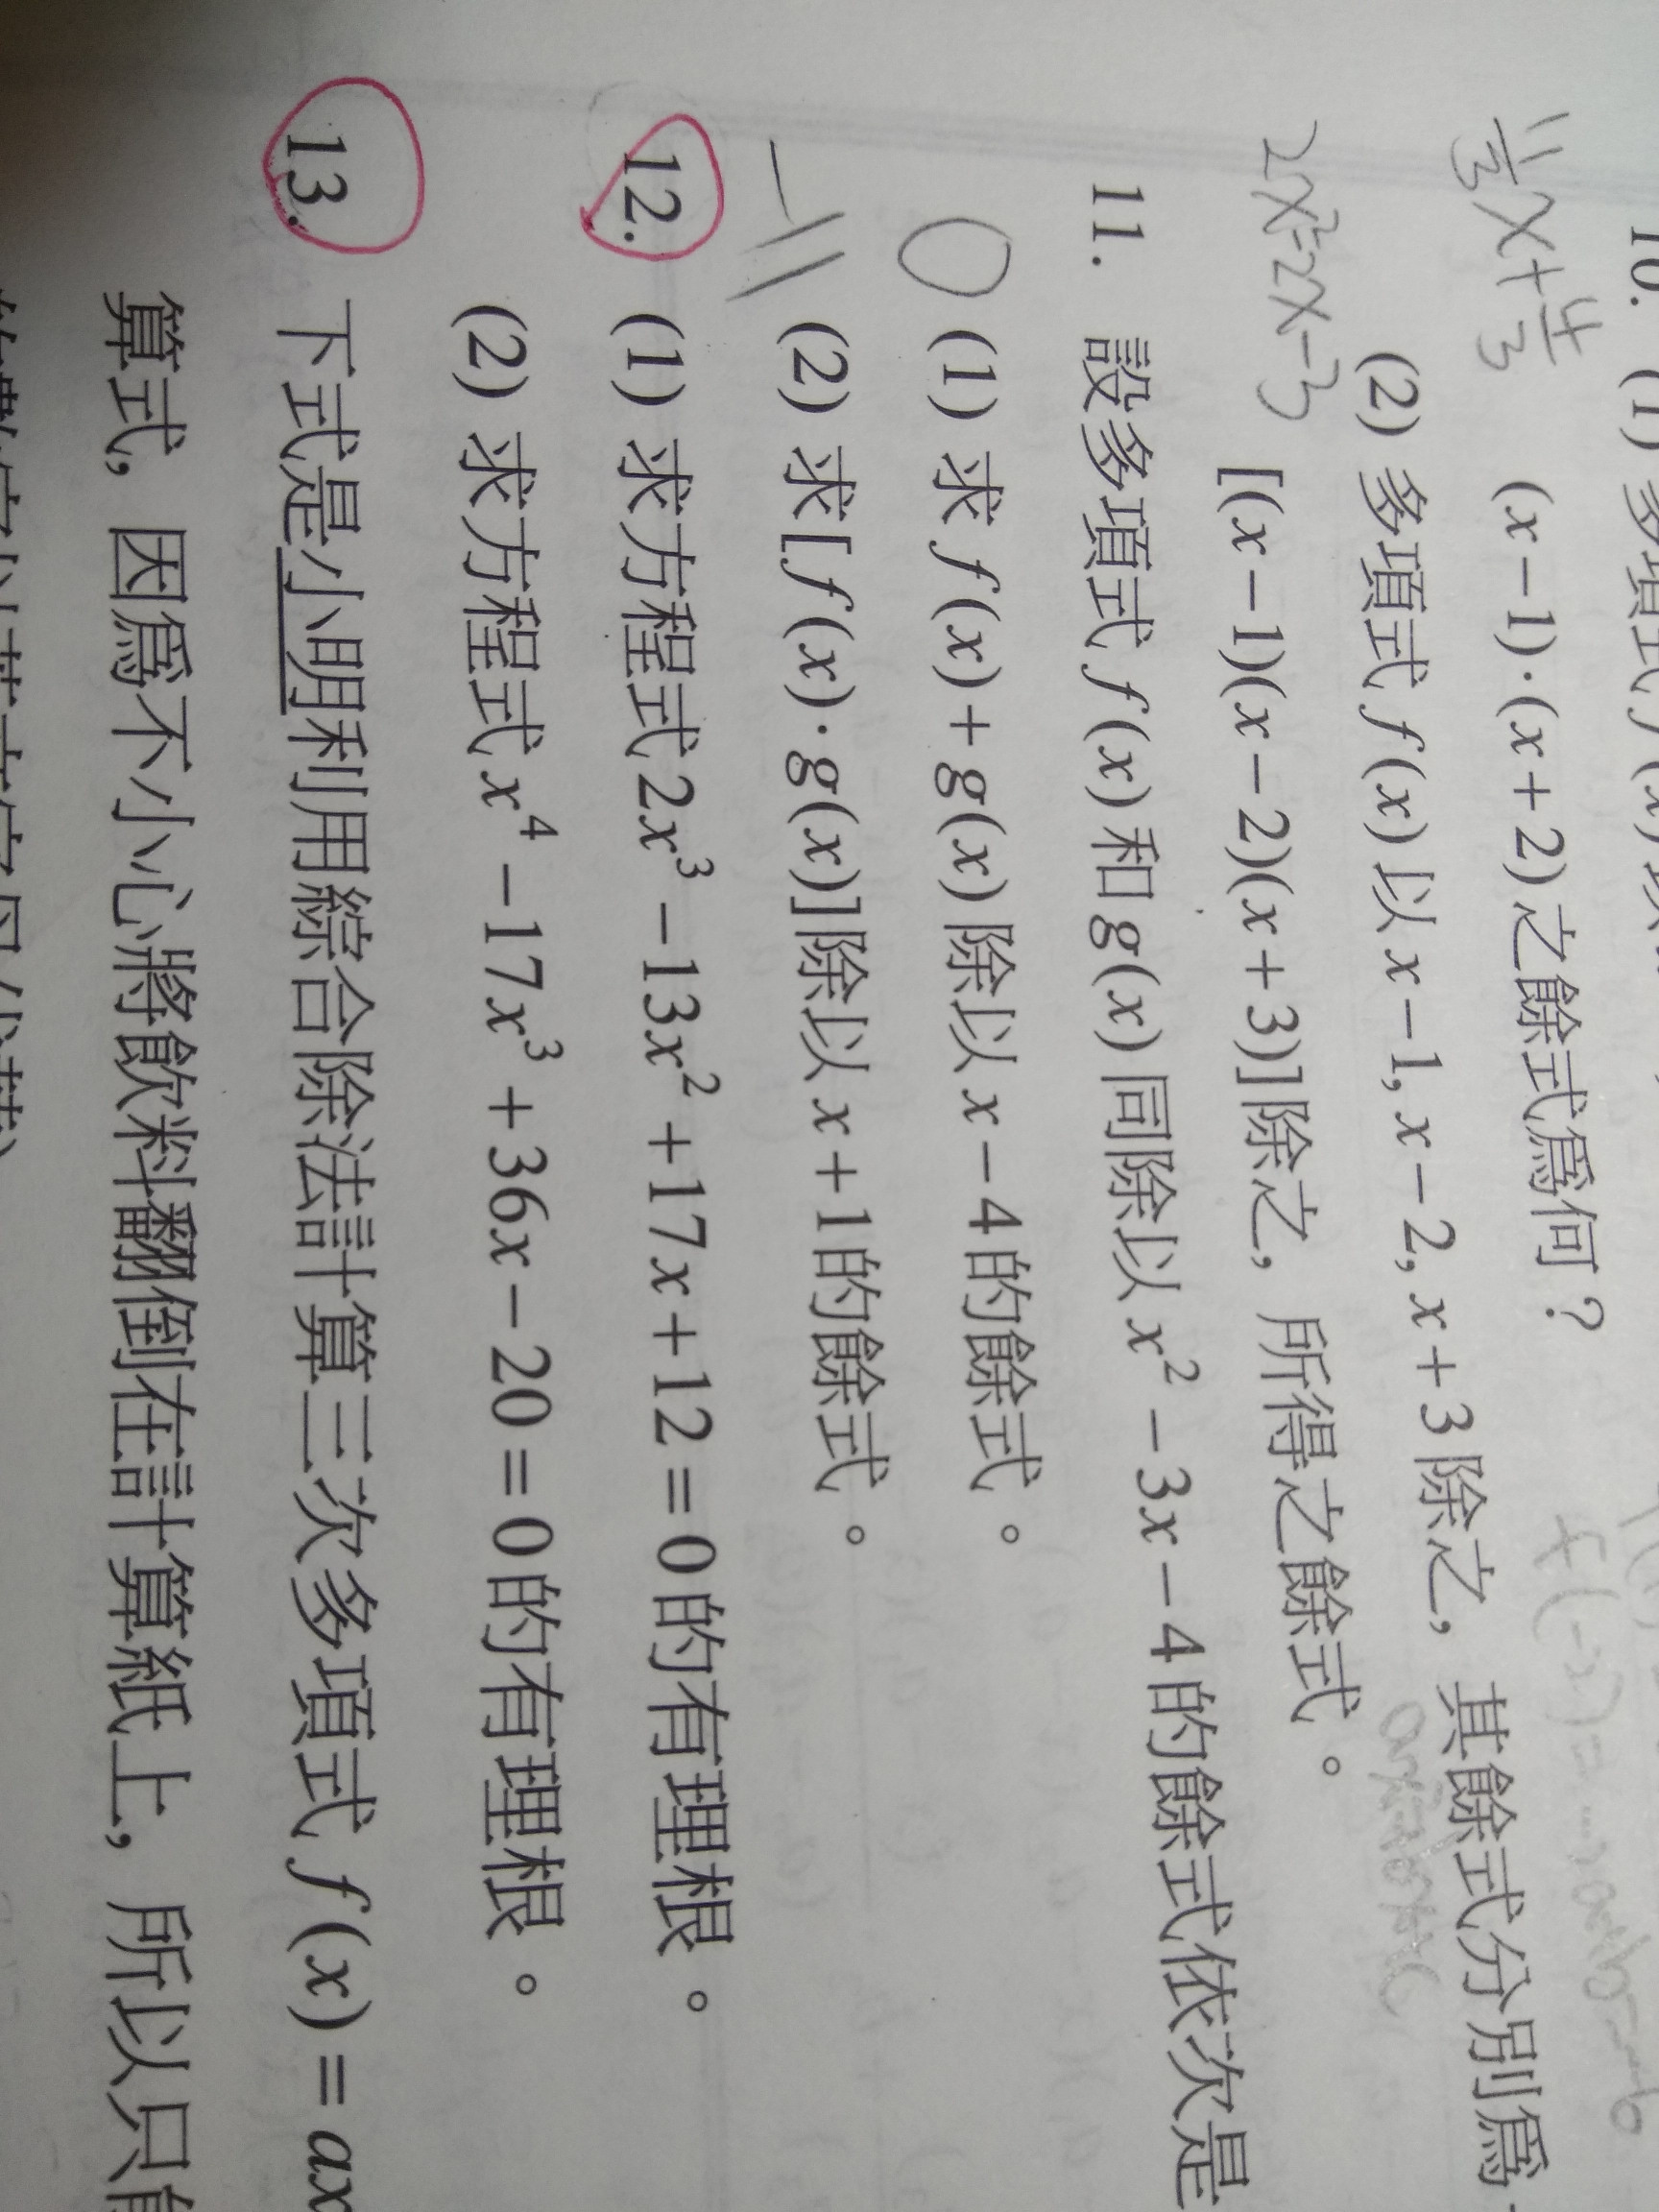 10. (1) 多項式 f(x) 以
1/3 x + 4/3 (x−1)·(x+2)之餘式爲何？
(2) 多項式 f(x) 以 x−1, x−2, x+3 除之，其餘式分別爲
2x²−2x−3 [(x−1)(x−2)(x+3)]除之，所得之餘式。
11. 設多項式 f(x) 和 g(x) 同除以 x²−3x−4 的餘式依次是
0 (1) 求 f(x)+g(x) 除以 x−4 的餘式。
−11 (2) 求[f(x)·g(x)]除以 x+1 的餘式。
12. (1) 求方程式 2x³−13x²+17x+12=0 的有理根。
(2) 求方程式 x⁴−17x³+36x−20=0 的有理根。
13. 下式是小明利用綜合除法計算三次多項式 f(x)=ax
算式，因爲不小心將飲料翻倒在計算紙上，所以只